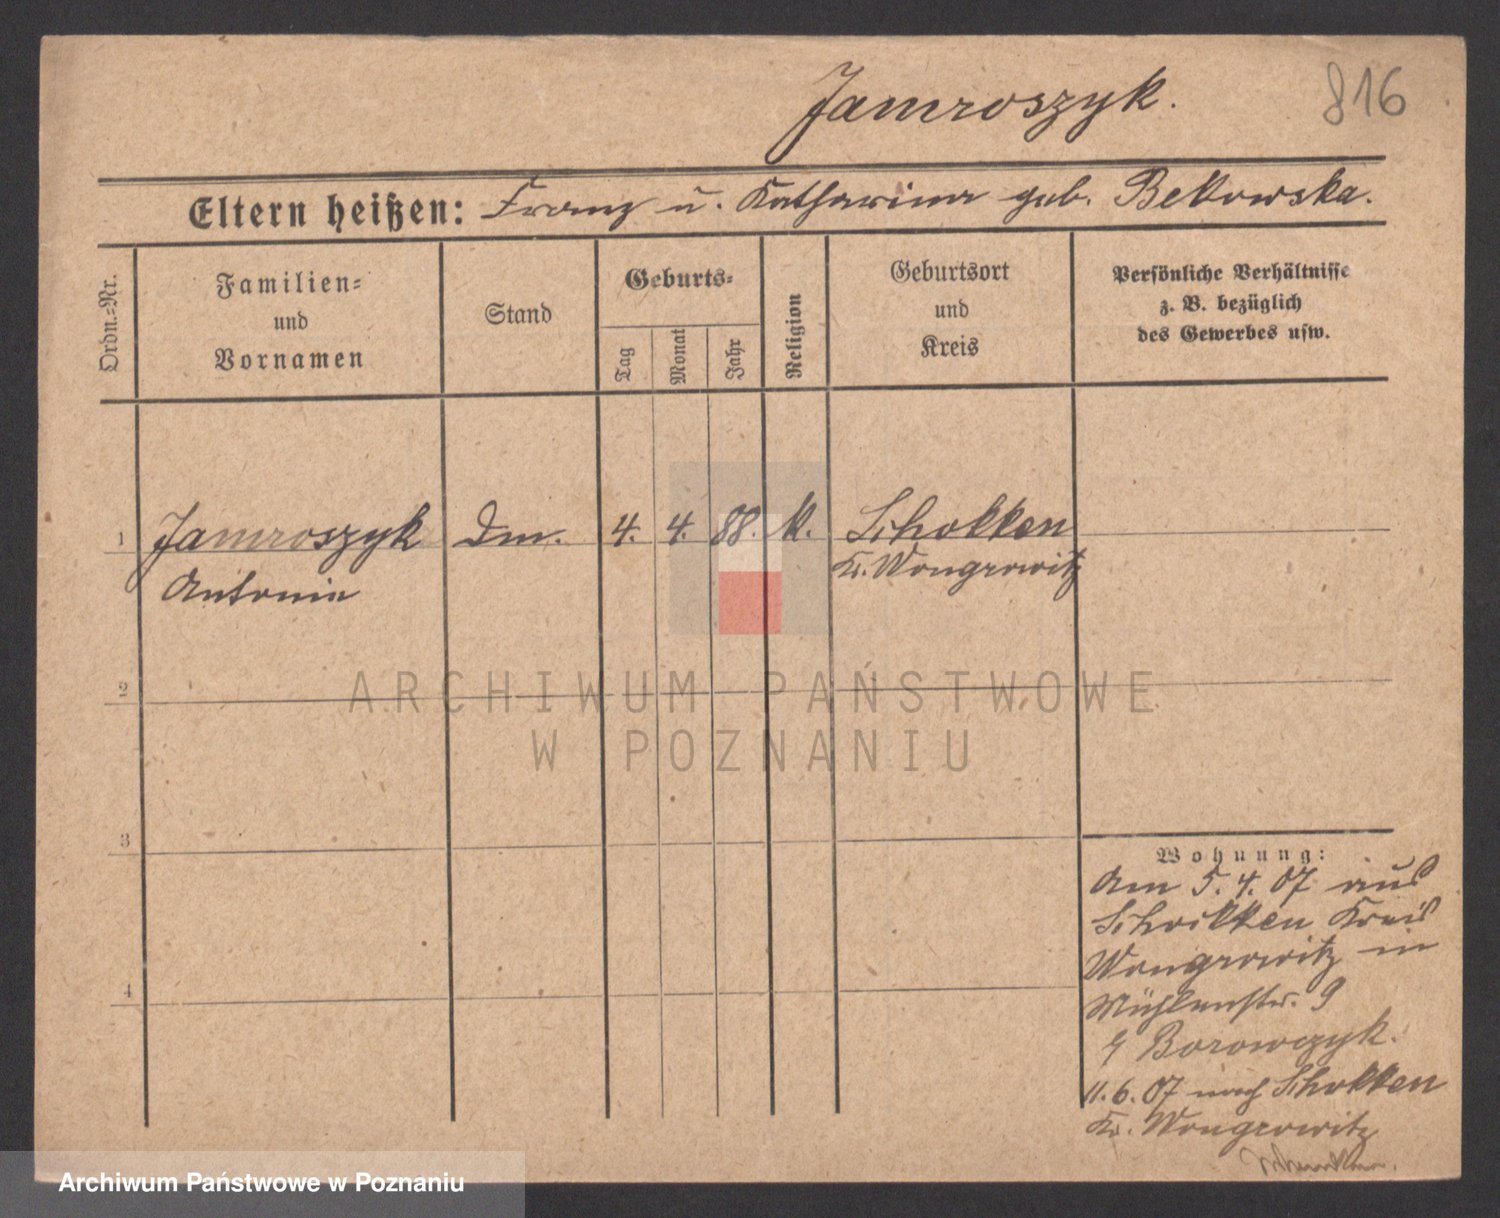 Jamroszyk.
816
Eltern heißen: Franz u. Katharina geb. Bekowska.
Ordn.-Nr.
Familien- und Vornamen
Stand
Geburts-
Tag
Monat
Jahr
Religion
Geburtsort und Kreis
Persönliche Verhältnisse
z. B. bezüglich
des Gewerbes usw.
1 Jamroszyk Dm. 4. 4. 88. k. Schokken
Antonie Kr. Wongrowitz
2
ARCHIWUM PAŃSTWOWE
W POZNANIU
3
Wohnung:
Am 5.4.07 aus
Schokken Kreis
Wongrowitz in
Mühlenstr. 9
Borowczyk.
11.6.07 nach Schokken
Kr. Wongrowitz
4
Archiwum Państwowe w Poznaniu